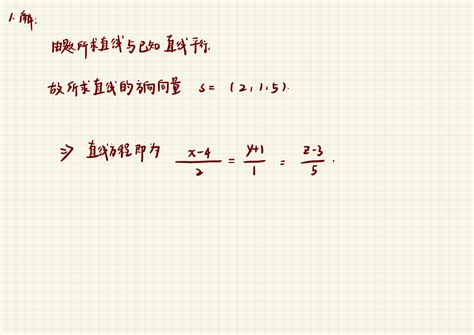 1. 解:
由题所求直线与已知直线平行,
故所求直线的方向向量 s = (2,1,5).
⇒ 直线方程即为 \frac{x-4}{2} = \frac{y+1}{1} = \frac{z-3}{5}.